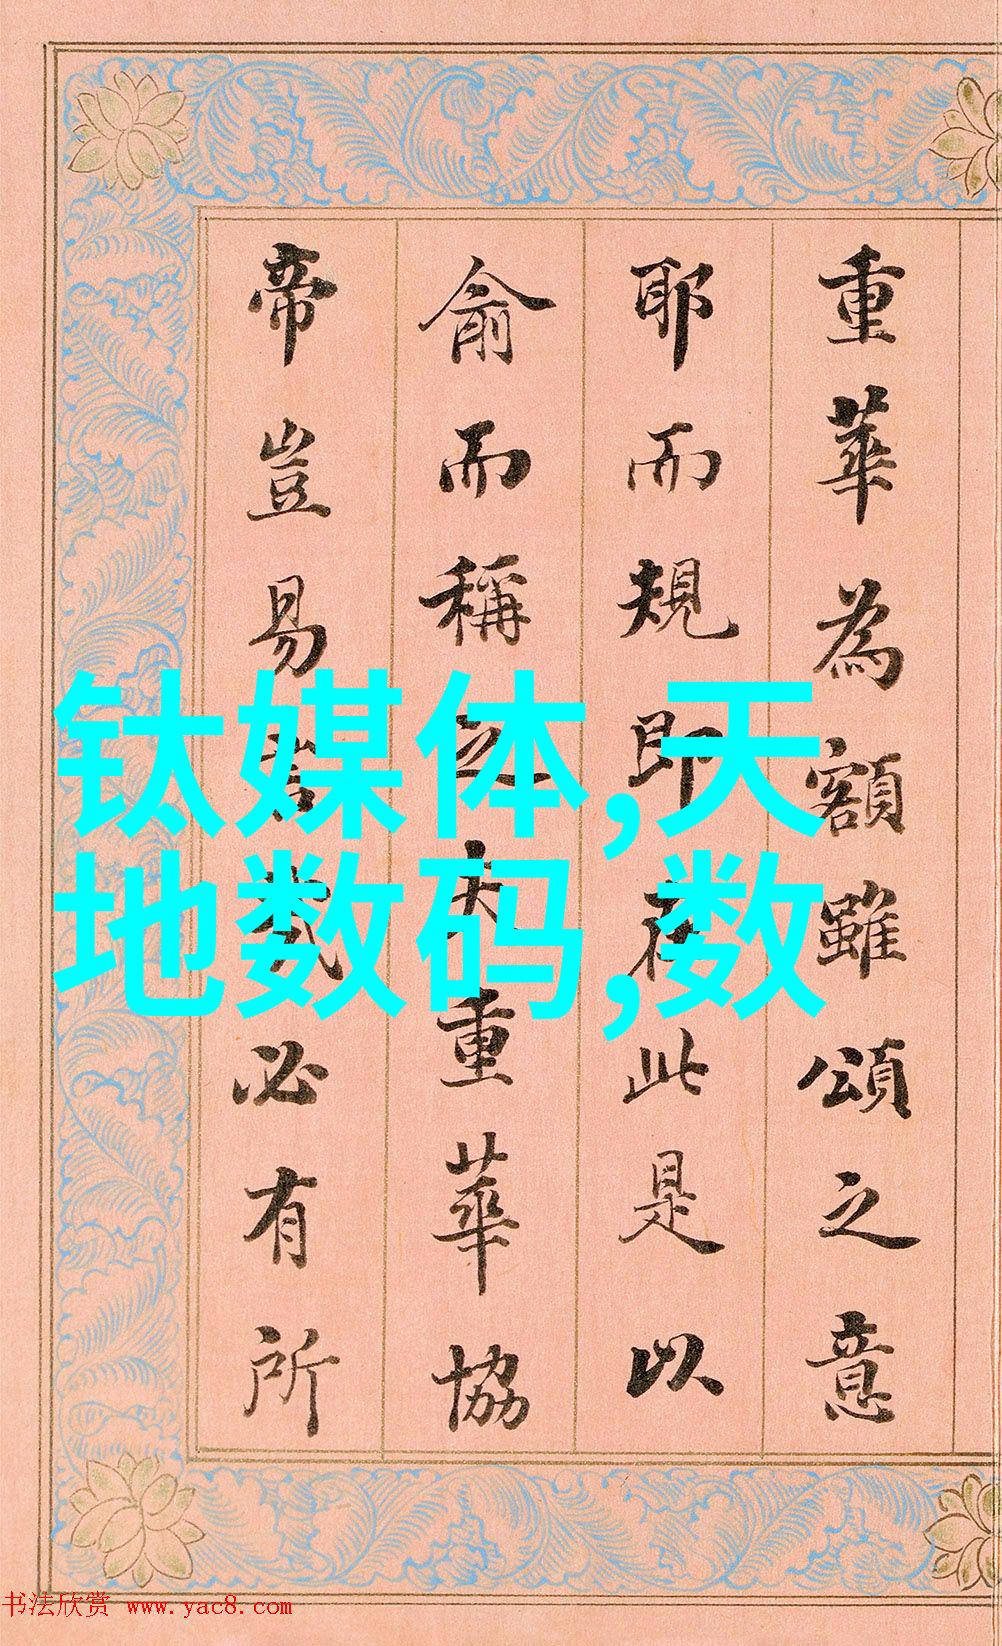 重華為額雖頌之意
耶而規即在此是以
俞而稱之大重華協
帝豈易言哉必有所
钛媒体,天
地数码,数
书法欣赏 www.yac8.com